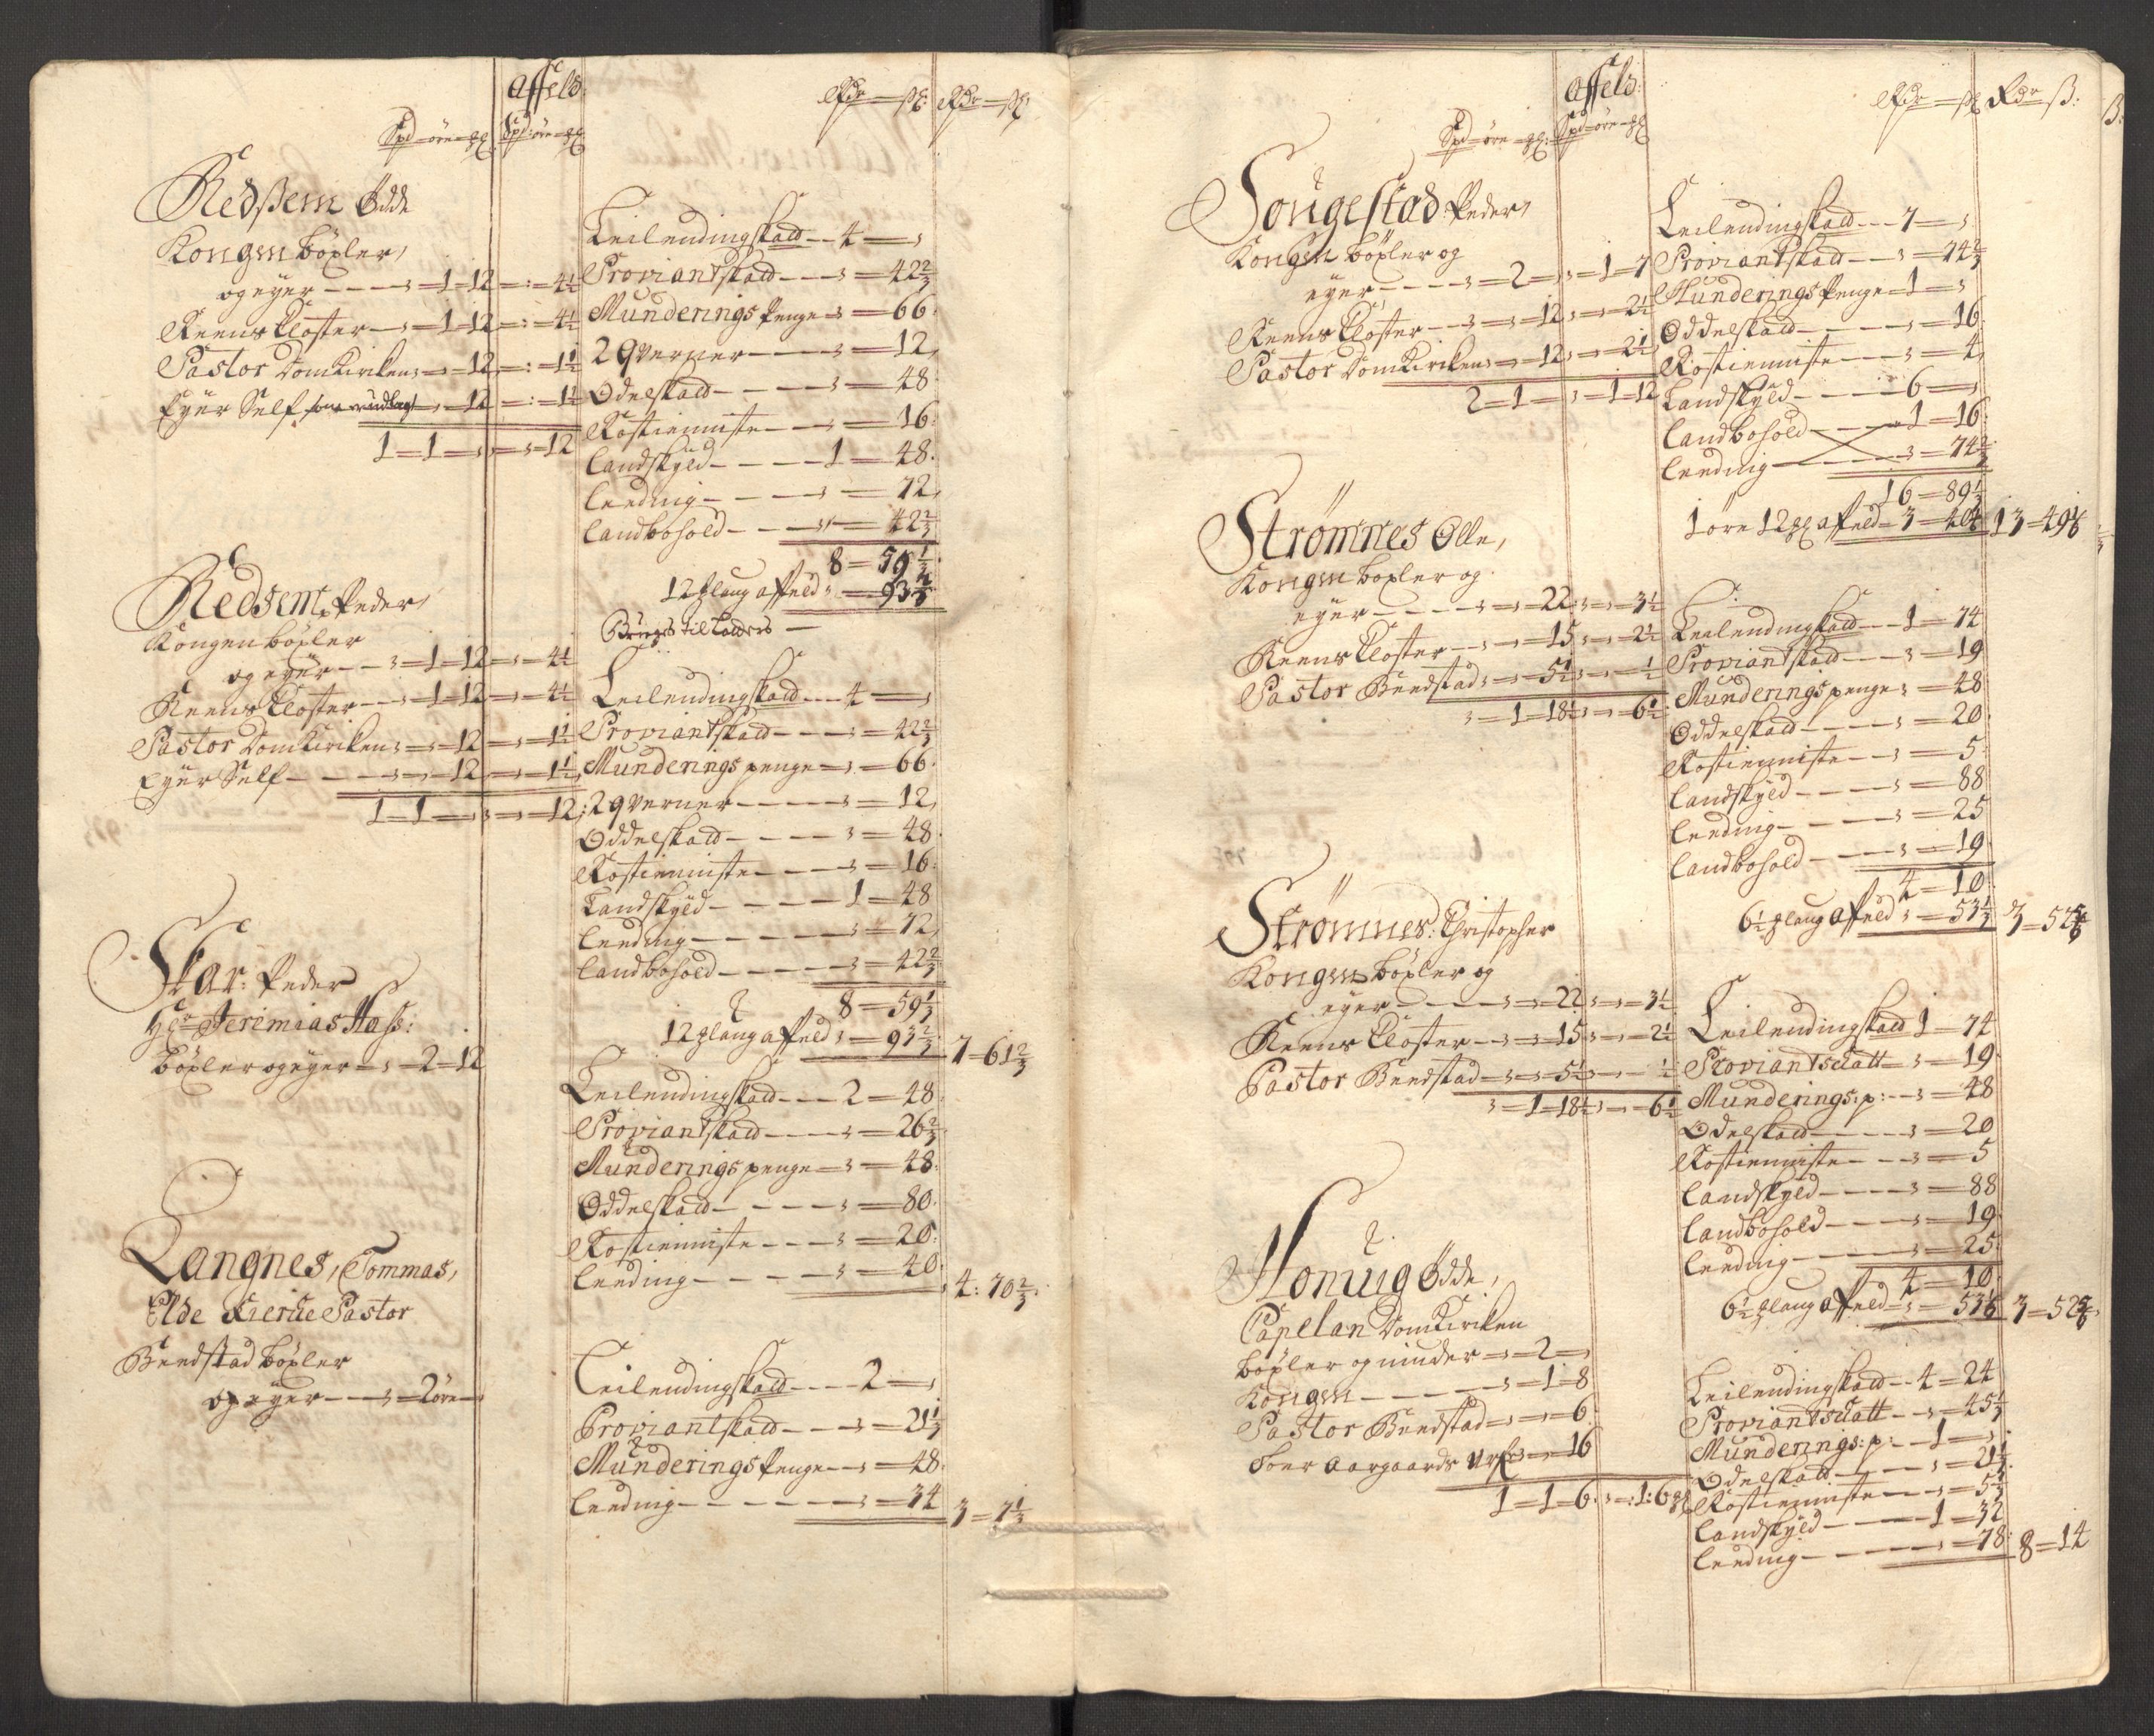 Affeld:
Spd – øre – gl: Spd: øre – gl
Rdr – ß: Rdr – ß:
Redßem Odde
Kongen böxler
og eyer – – – 1 – 12 – : – 4½
Reens Closter – 1 – 12 – : – 4½
Pastor Domkirken – 12 – : – 1½
Eyer Self – 12 – : – 1½
1 – 1 – – – 12
Leilendingskatt – 4 –
Proviantskatt – – 42⅔
Munderings Penge – – 66
2 Qverner – – 12
Odelskatt – – 48
Rostieniste – – 16
Landskyld – 1 – 48
Leeding – – 72
Landbohold – – 42⅔
8 – 59⅓
12 glaug affeld – 93⅔
Redsem, Peder
Kongen böxler
og eyer – – 1 – 12 – – 4½
Reens Closter – 1 – 12 – – 4½
Pastor Domkirken – – 12 – – 1½
Eyer Self – – – 12 – – 1½
1 – 1 – – – 12
Leilendingskatt – 4 –
Proviantskatt – – 42⅔
Munderings penge – – 66
2 qverner – – 12
Oddelskatt – – 48
Rostieniste – – 16
Landskyld – 1 – 48
Leeding – – 72
Landbohold – – 42⅔
8 – 59⅓
12 glaug affeld – 93⅔ 7 – 61⅔
Skar: Peder
Hr Jeremias Hass:
böxler og eyer – 2 – 12
Leilendingskatt – 2 – 48
Proviantskatt – – 26⅔
Munderings penge – – 48
Oddelskatt – – 80
Rostieniste – – 20
Leeding – – 40 4: 70⅔
Langnes, Tommas,
Pastor
Beedstad böxler
og eyer – – 2 øre
Leilendingskatt – 2 –
Proviantskatt – – 21⅓
Munderings Penge – – 48
Leeding – – 34 3 – 7⅓
Affeld:
Spd – øre – gl: Spd – øre – gl
Rdr – ß Rdr ß:
Sougestad Peder,
Kongen böxler og
eyer – – – 2 – – 1 – 7
Reens Closter – – 12 – – 2½
Pastor Domkirken – 12 – – 2½
2 – 1 – – 1 – 12
Leilendingskatt – 7 –
Proviantskatt – – 74⅔
Munderings Penge – 1 –
Oddelskatt – – 16
Rostieniste – – 4
Landskyld – 6 –
Landbohold – 1 – 16
Leeding – – 74⅔
16 – 89⅓
1 øre 12 gl affeld – 3 – 13 – 49⅙
Strømnes Olle,
Kongen böxler og
eyer – – – 22 – – 3½
Reens Closter – – 15 – – 2½
Pastor Beedstad – – 5½ – – ½
– 1 – 18½ – – 6½
Leilendingskatt – 1 – 74
Proviantskatt – – 19
Munderings penge – – 48
Oddelskatt – – 20
Rostieniste – – 5
Landskyld – – 88
Leeding – – 25
Landbohold – – 19
4 – 10
6½ glaug affeld – 53⅓ 3 – 52⅚
Strømnes: Christopher
Kongen böxler og
eyer – – – 22 – – 3½
Reens Closter – – 15 – – 2½
Pastor Beedstad – – 5½ – – ½
– 1 – 18½ – – 6½
Leilendingskatt 1 – 74
Proviantschatt – – 19
Munderings: p: – – 48
Odelskatt – – 20
Rostieniste – – 5
Landskyld – – 88
Landbohold – – 19
Leeding – – 25
4 – 10
6½ glaug affeld – 53⅙ 3 – 52⅚
Honuig Odde,
Capelan Domkirken
böxler og – 2 –
Kongen – – – 1 – 8
Pastor Beedstad – – 6
Soer Aargaards – 16
1 – 1 – 6 – : 1: 6 gl
Leilendingskatt – 4 – 24
Proviantschatt – – 45⅓
Munderings: p: – 1 –
Odelskatt – – 21⅓
Rostieniste – – 5⅓
Landskyld – 1 – 32
Leeding – – 78 8 – 14